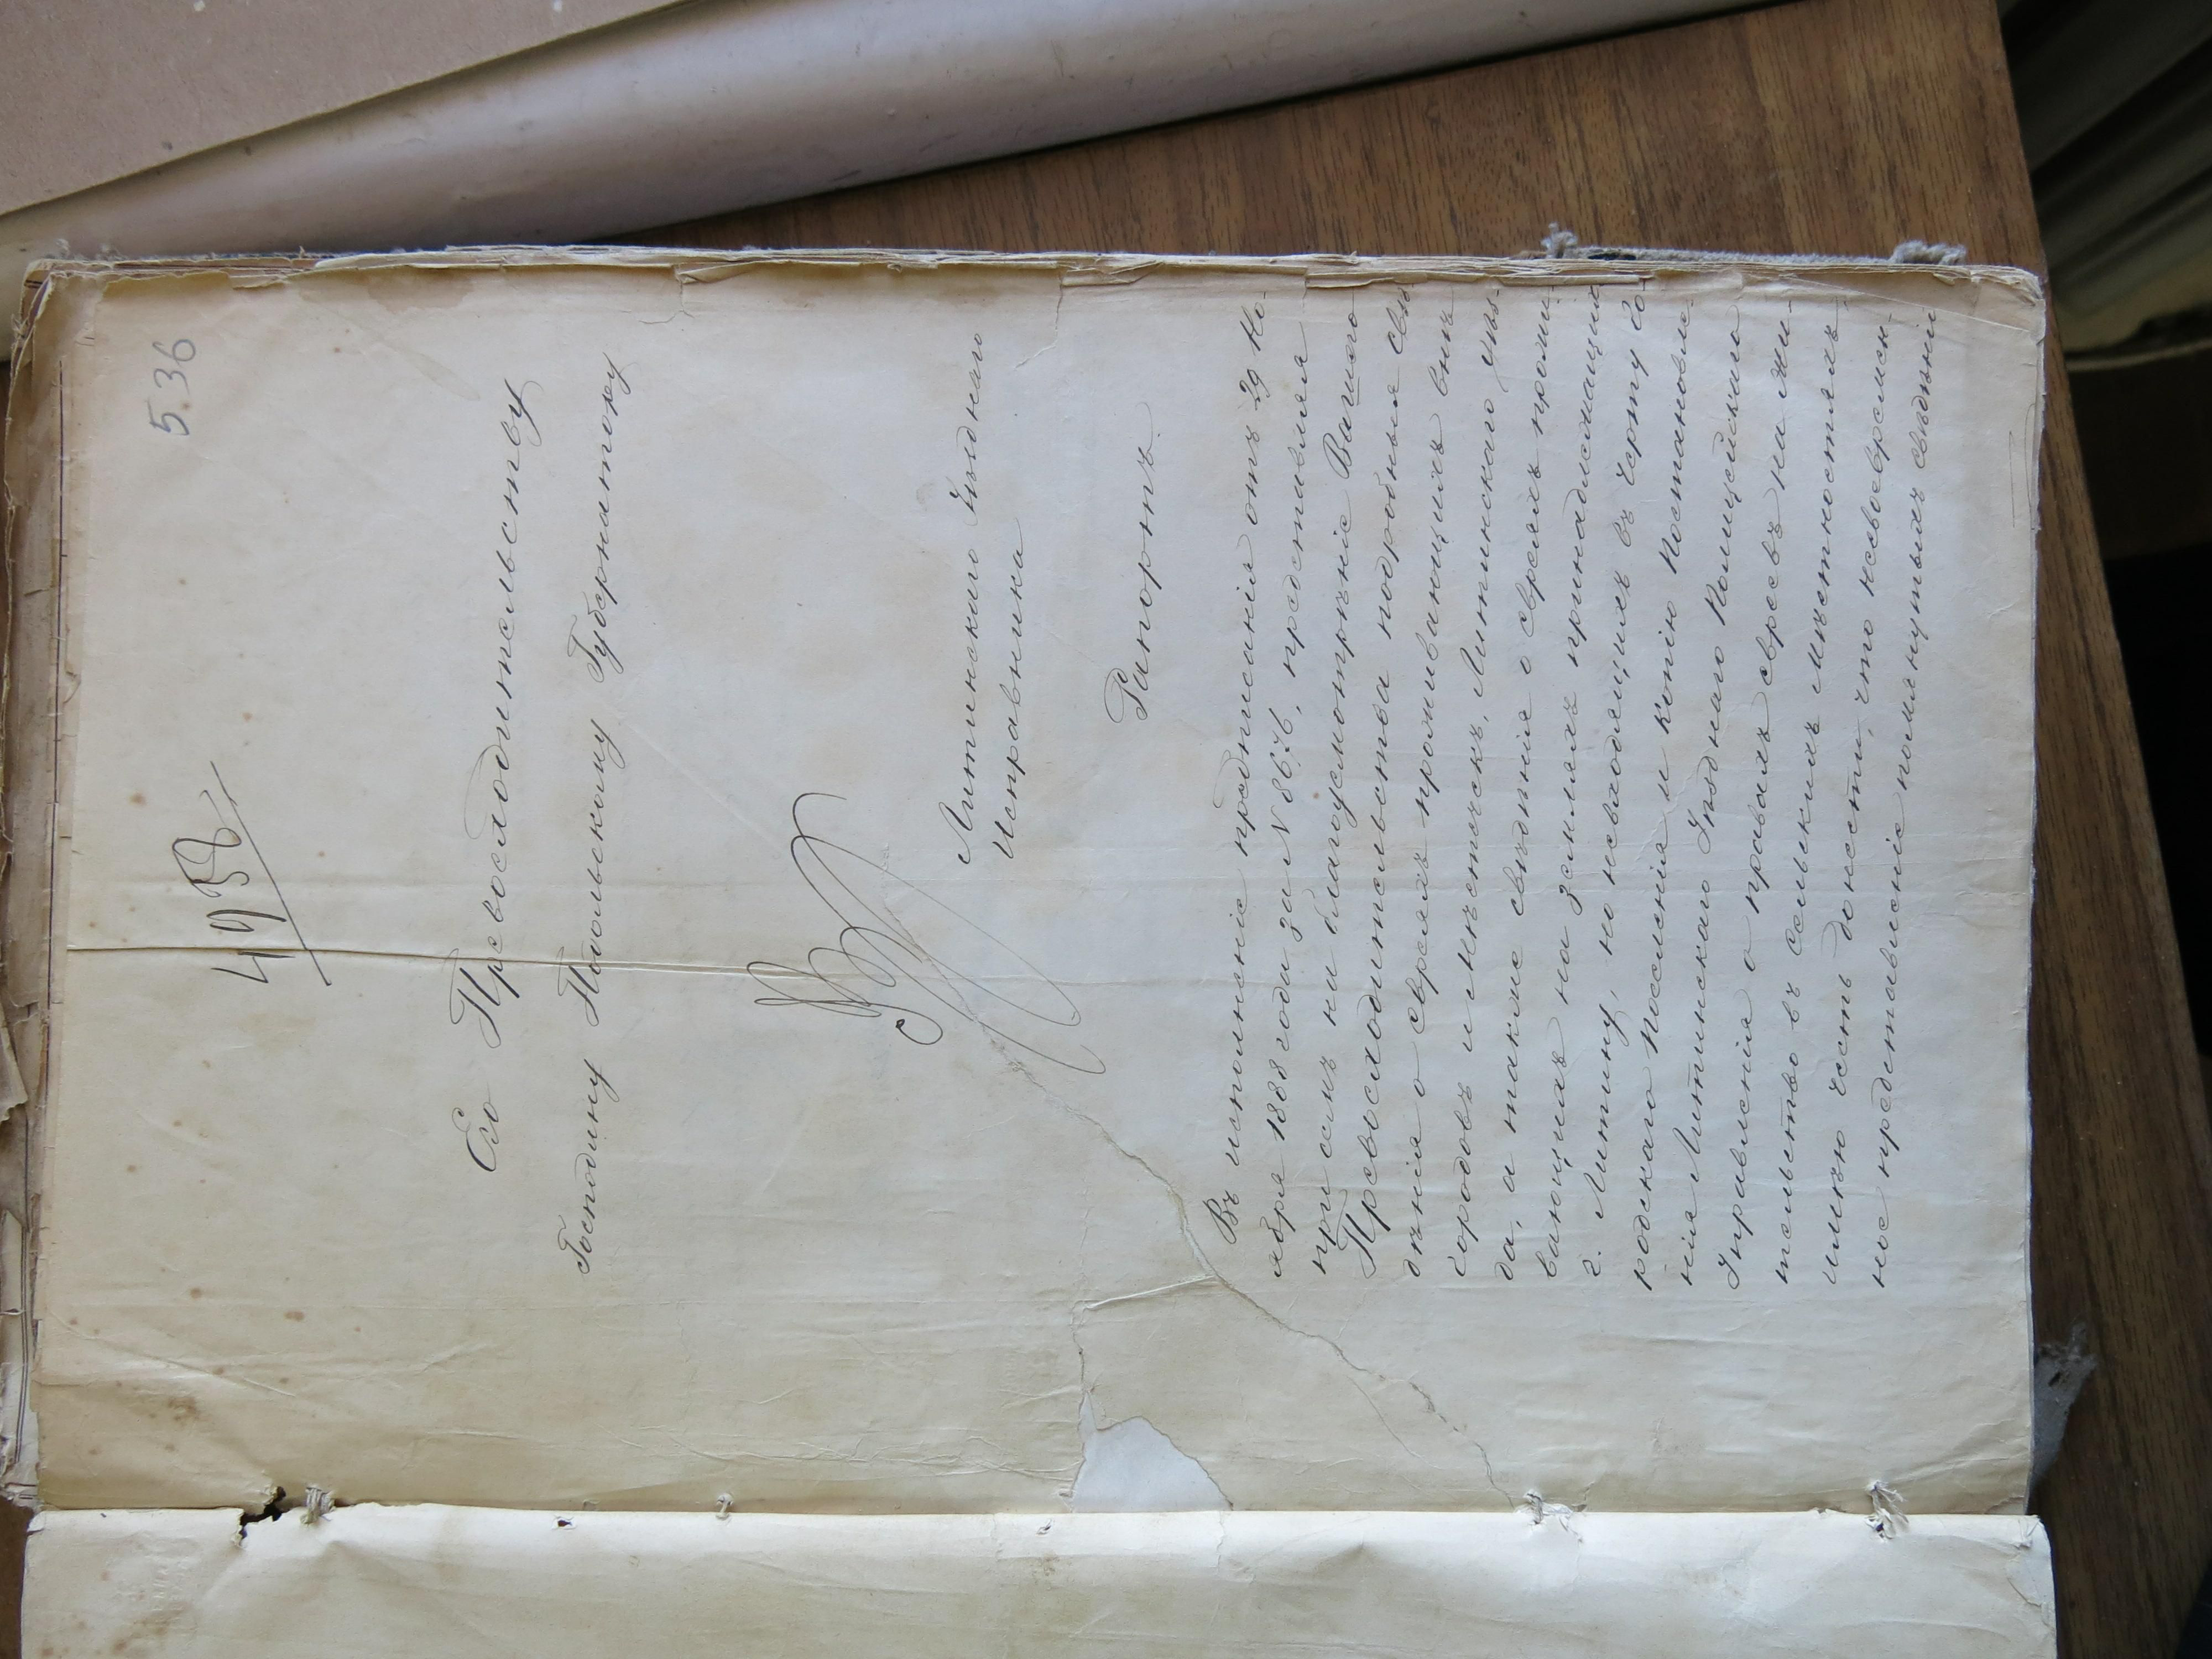 536
4958
Его Превосходительству
Господину Подольскому Губернатору
Литинскаго Уѣзднаго
Исправника
Рапортъ.
Въ исполненіе предписанія отъ 29 Но-
ября 1888 года за N 8676, представляя
при семъ на благоусмотрѣніе Вашего
Превосходительства подробныя свѣ-
дѣнія о евреяхъ проживающихъ внѣ
городовъ и мѣстечекъ, Литинскаго уѣз-
да, а также свѣдѣнія о евреяхъ прожи-
вающихъ на земляхъ принадлежащихъ
г. Литину, но невходящихъ въ черту го-
родскаго поселенія и копію постановле-
нія Литинскаго Уѣзднаго Полицейскаго
Управленія о правахъ евреевъ на жи-
тельство въ сельскихъ мѣстностяхъ
имѣю честь донести, что несвоевремен-
ное представленіе помянутыхъ свѣдѣній